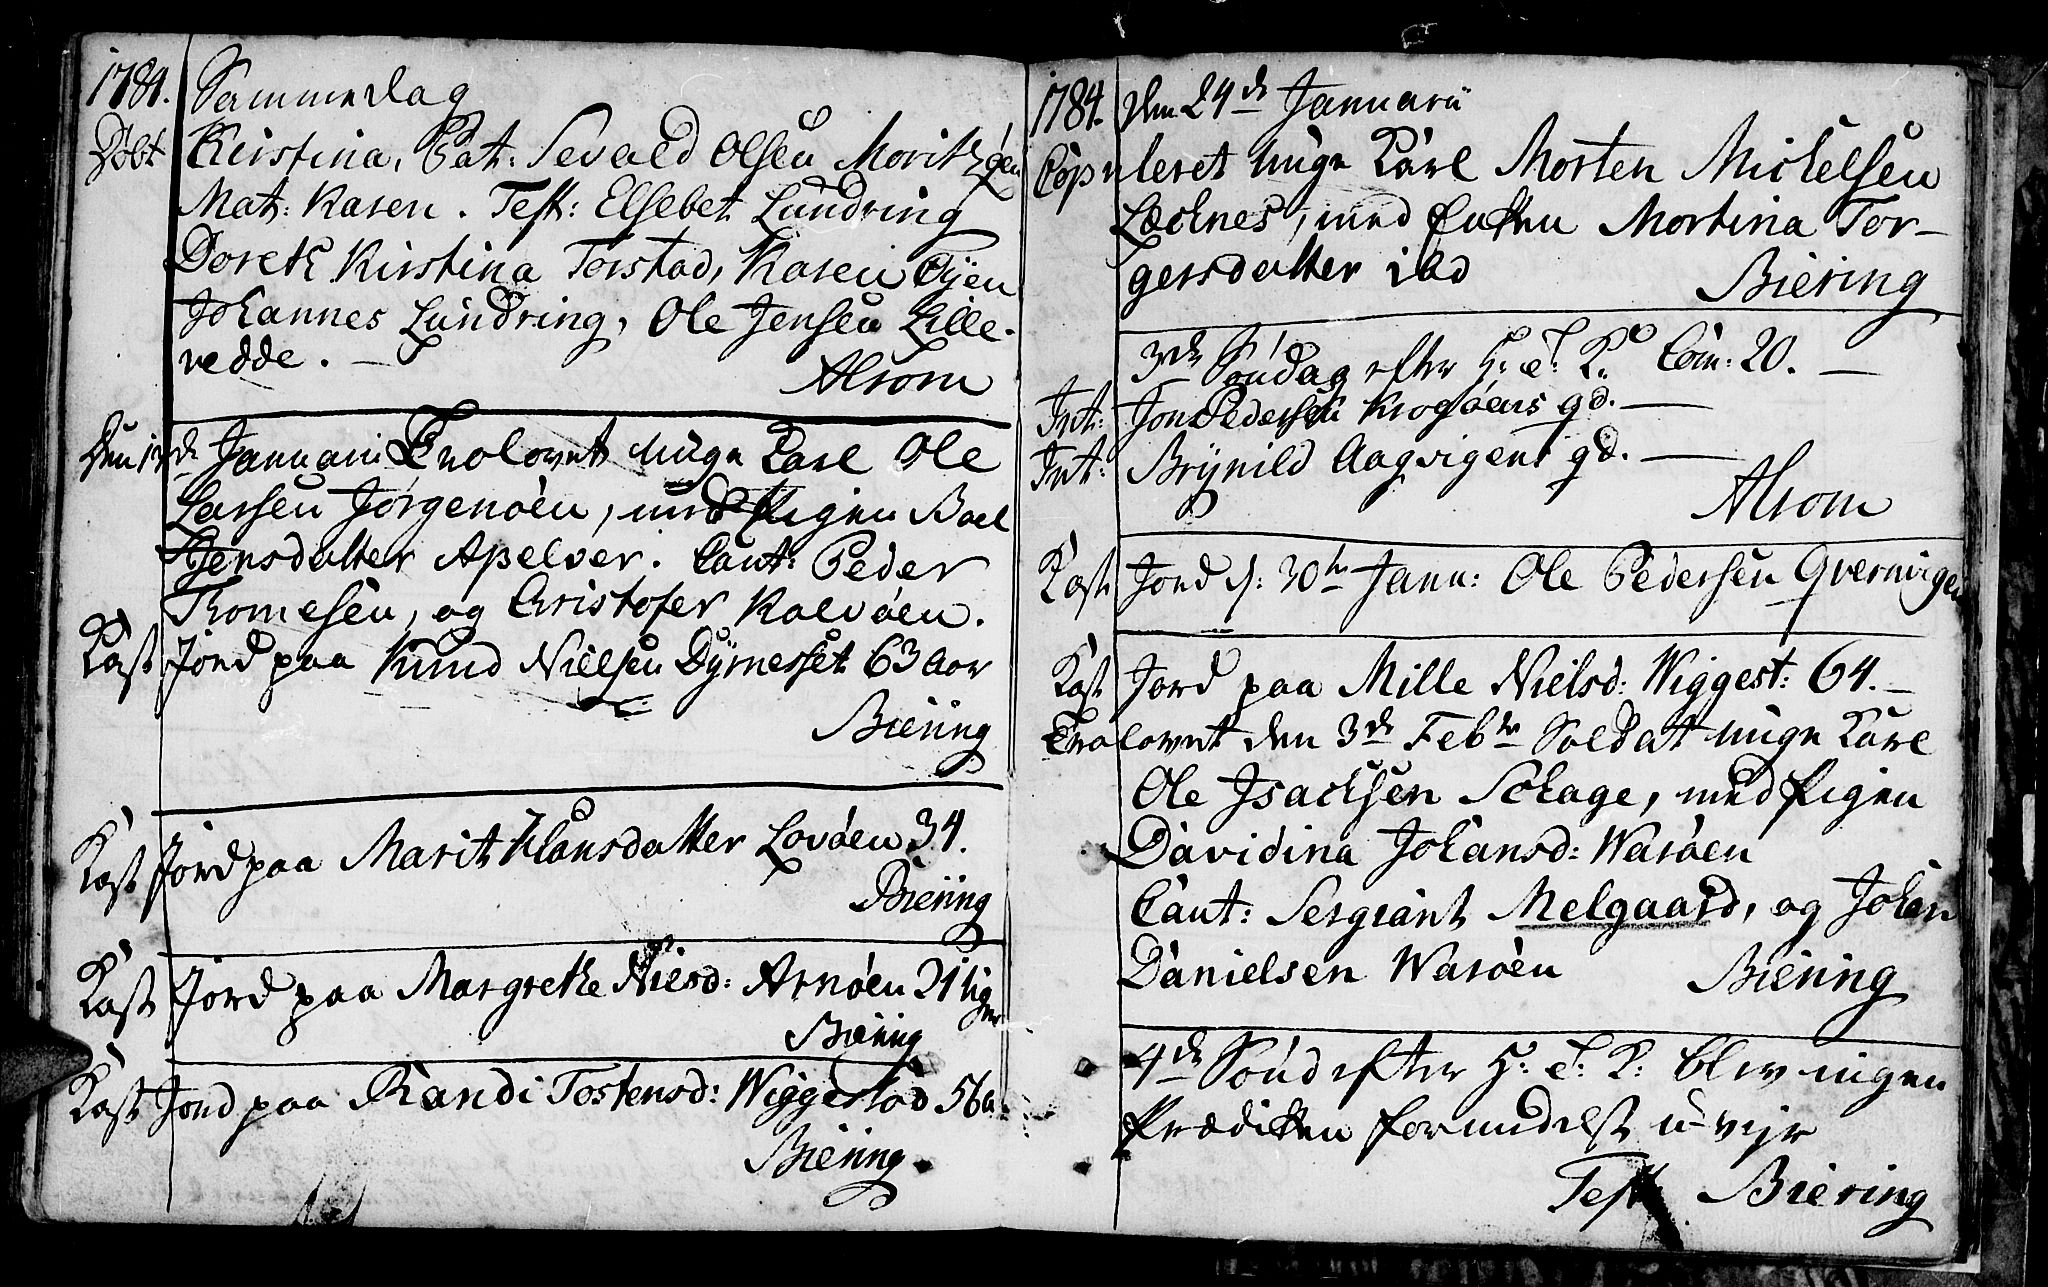 1784. Sammedag
Døbt Kirstina, Pat: Sevald Olsen Moritzøen
Mat: Karen. Test: Elsebet Lundring
Doreth Kirstina Torstad, Karen Øyen
Johannes Lundring, Ole Jensen Lille-
vedde. —
Alsom
Den de Januarii Trolovet unge Karl Ole
Larsen Jørgenøen, med Pigen Boel
Jensdatter Apelvær. Caut: Peder
Thomesen, og Christofer Kalvøen.
Kast Jord paa Knud Nielsen Dyrnesset 63 Aar
Biering
Kast Jord paa Marit Hansdatter Lovøen 34.
Biering
Kast Jord paa Margrethe Niesd: Arnøen 21 Uger
Biering
Kast Jord paa Randi Tostensd: Wiggestad 56 a.
Biering
1784. den 24de Januarii
Copuleret unge Karl Morten Mickelsen
Lecknes, med Enken Mortina Tor-
gersdatter ibd
Biering
3de Søndag efter H. T. K. Com: 20. —
Int: Jon Pedersen Krogøens gd. —
Int: Brynild Aagvigens gd. —
Alsom
Kast Jord d: 30te Janu: Ole Pedersen Qvernvigen
Kast Jord paa Mille Nielsd: Wiggest: 64. —
Trolovet den 3de Febr Soldat unge Karl
Ole Isachsen Schage, med Pigen
Davidina Johansd: Warøen
Caut: Sergiant Melgaard, og Johan
Danielsen Warøen
Biering
4de Sønd efter H: T: K: blev ingen
Prædiken formedelst u-vejr
Test Biering